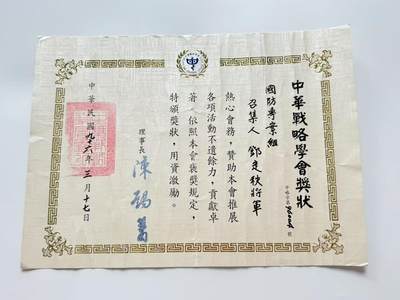 中華戰略學會獎狀
國防專業組
召集人 鄧定秩將軍
熱心會務，贊助本會推展
各項活動不遺餘力，貢獻卓
著，依照本會褒獎規定，
特頒獎狀，用資激勵。
理事長 陳鍚蕃
中華民國九六年三月十七日